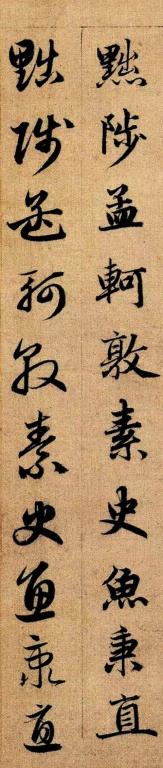 黜陟孟軻敦素史魚秉直
黜陟孟軻敦素史魚秉直